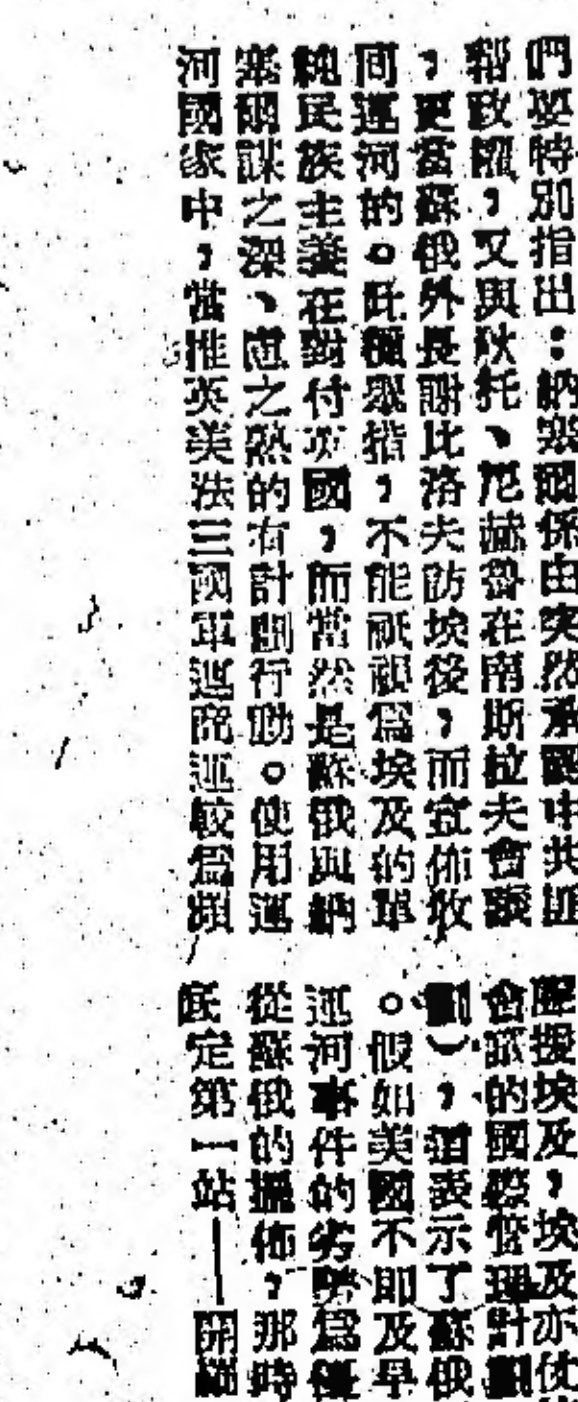 們要特別指出：納瑟爾係由突然承認中共匪
幫政權，又與狄托、尼赫魯在南斯拉夫會議
，更當蘇俄外長謝比洛夫訪埃後，而宣佈收
回運河的。此種舉措，不能祇視為埃及的單
純民族主義在對付英國，而當然是蘇俄與納
瑟爾謀之深、慮之熟的有計劃行動。使用運
河國家中，當推英美法三國軍運商運較為頻
壓援埃及，埃及亦仗
會議的國際管理計劃
劃），表示了蘇俄
。假如美國不即及早
運河事件的劣勢為優
從蘇俄的擺佈，那時
底定第一站——開